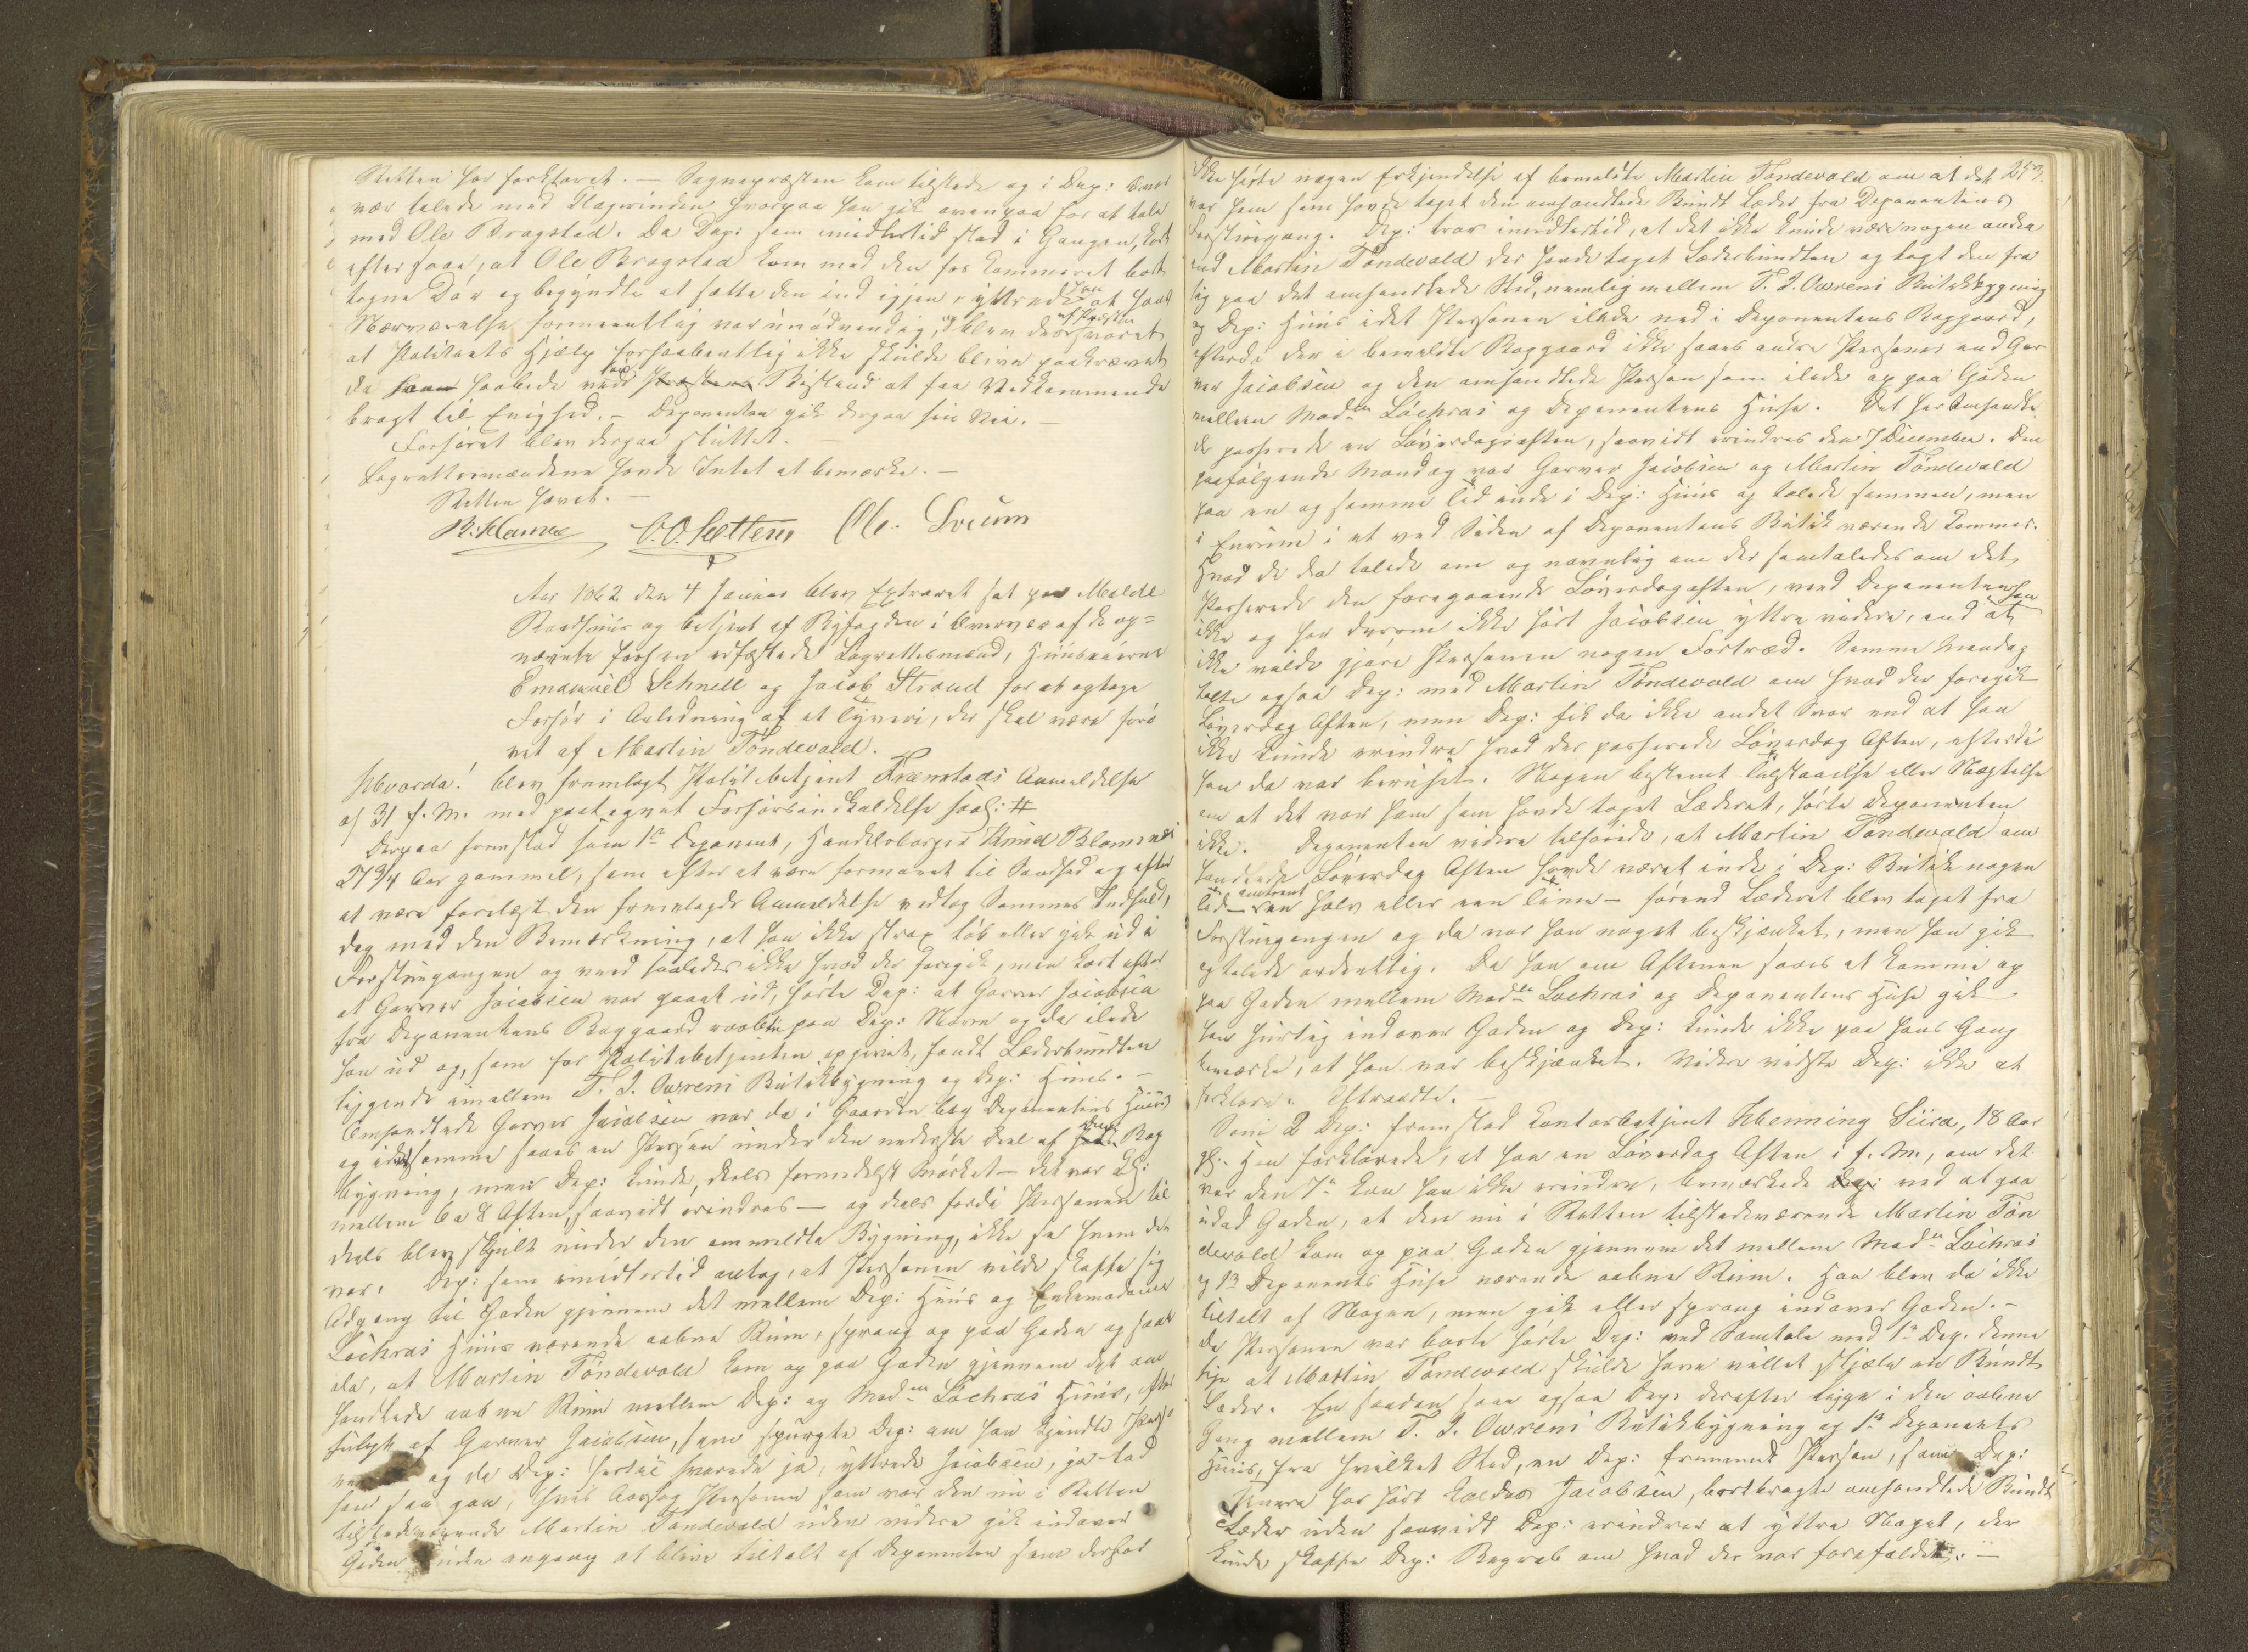 Retten har forklaret. — Sognepræsten kom tilstede og i Dep: Over
vær talede med Klagerinden hvorpaa han gik ovenpaa for at tale
med Ole Bragstad. Da Dep: som imidlertid stod i Gangen, kort
efter saae, at Ole Bragstad kom med den for Kammeret bort
tagne Dør og begyndte at sætte den ind igjen, yttrede han at hans
Nærværelse formeentlig var unødvendig, og blev der af Præsten svaret
at Politiets Hjælp forhaabentlig ikke skulde blive paakrævet
da han haabede ved sin Præstens Bistand at faa Vedkommende
bragt til Enighed. — Deponenten gik derpaa sin Vei. —
Forhøret blev derpaa sluttet. —
Lagrettemændene havde Intet at bemærke. —
Retten hævet. —
R. Hamre O. O. Sættem Ole Sverum
Aar 1862 den 4 Januar blev Extraret sat paa Molde
Raadhuus og betjent af Byfogden i Overvær af de op=
nævnte forhen edfæstede Lagrettesmænd, Huuseierne
Emanuel Schnell og Jacob Strand for at optage
Forhør i Anledning af et Tyveri, der skal være forø
vet af Martin Tøndevold.
Hvorda! blev fremlagt Politibetjent Frænstads Anmeldelse
af 31 f. M. med paategnet Forhørsindkaldelse saal: #
Derpaa fremstod som 1ste Deponent, Handelsborger Knud Blomsnæs
27 3/4 Aar gammel, som efter at være formanet til Sandhed og efter
at være forelæst den fremlagte Anmeldelse vedtog Sammes Indhold,
dog med den Bemærkning, at han ikke strax løb eller gik ud i
Forstuegangen og veed saaledes ikke hvad der foregik, men kort efter
at Garver Jacobsen var gaaet ud, hørte Dep: at Garver Jacobsen
fra Deponentens Baggaard raabte paa Dep: Navn og da ilede
han ud og, som for Politibetjenten opgivet, fandt Læderbundten
liggende imellem T. J. Owrens Butikbygning og Dep: Huus. —
Omhandlede Garver Jacobsen var da i Gaarden bag Deponentens Huus
og idetsamme saaes en Person under den nederste Deel af Dep: Bag
bygning, men Dep: kunde, deels formedelst Mørket — det var Kl:
mellem 6 a 8 Aften, saavidt erindres — og deels fordi Personen til
deels blev skjult under den anmeldte Bygning, ikke se hvem den
var. Dep: som imidlertid antog, at Personen vilde skaffe sig
Adgang til Gaden gjennem det mellem Dep: Huus og Enkemadame
Löchras Huus værende aabne Rum, sprang op paa Gaden og saae
da, at Martin Tøndevold kom op paa Gaden gjennem det om
handlede aabne Rum mellem Dep: og Madm Löchras Huus, efter
fulgt af Garver Jacobsen, som spurgte Dep: om han kjendte Perso
og da Dep: hertil svarede ja, yttrede Jacobsen, ja – lad
ham saa gaa, hvis Aarsag Personen som var den nu i Retten
tilstedeværende Martin Tøndevold uden videre gik indover
Gaden uden engang at blive tiltalt af Deponenten som derfor
253.
ikke hørte nogen Erkjendelse af bemeldte Martin Tøndevold om at det
var ham som havde taget den omhandlede Bundt Læder fra Deponentens
Forstuegang. Dep: troer imidlertid, at det ikke kunde være nogen anden
end Martin Tøndevold der havde taget Læderbundten og lagt den fra
sig paa det omhandlede Sted, nemlig mellem T. J. Owrens Butikbygning
og Dep: Huus idet Personen ilede ned i Deponentens Baggaard,
efterdi der i bemeldte Baggaard ikke saaes andre Personer end Gar
ver Jacobsen og den omhandlede Person som ilede op paa Gaden
mellem Madm Löchras og Deponentens Huse. Det her Omhandle
de passerede en Løverdagsaften, saavidt erindres den 7 December. Den
paafølgende Mandag var Garver Jacobsen og Martin Tøndevold
paa en og samme Tid inde i Dep: Huus og talede sammen, men
i Enrum i et ved Siden af Deponentens Butik værende Kammer.
Hvad de da talede om og navnlig om der samtaledes om det
Passerede den foregaaende Løverdagaften, veed Deponenten
ikke og har derom ikke hørt Jacobsen yttre videre, end at han
ikke vilde gjøre Personen nogen Fortræd. Samme Mandag
talte ogsaa Dep: med Martin Tøndevold om hvad der foregik
Løverdag Aften, men Dep: fik da ikke andet Svar end at han
ikke kunde erindre hvad der passerede Løverdag Aften, efterdi
han da var beruset. Nogen bestemt Tilstaaelse eller Nægtelse
om at det var ham som havde taget Læderet, hørte Deponenten
ikke. Deponenten videre tilføiede, at Martin Tøndevold om
handlede Løverdag Aften havde været inde i Dep: Butik nogen
Tid — omtrent een halv eller een Time — førend Læderet blev taget fra
Forstuegangen og da var han noget beskjænket, men han gik
og talede ordentlig. Da han om Aftenen saaes at komme op
paa Gaden mellem Madm Löchras og Deponentens Huse gik
han hurtig indover Gaden og Dep: kunde ikke paa hans Gang
bemærke, at han var beskjænket. Videre vidste Dep: ikke at
forklare. Aftraadte. —
Som 2 Dep: fremstod Contorbetjent Henning Siira, 18 Aar
gl. Han forklarede, at han en Løverdag Aften i f. M., om det
var den 7de kan han ikke erindre, bemærkede Dep: ved at gaa
udad Gaden, at den nu i Retten tilstedeværende Martin Tøn
devold kom op paa Gaden gjennem det mellem Madm Löchras
og 1ste Deponents Huse værende aabne Rum. Han blev da ikke
tiltalt af Nogen, men gik eller sprang indover Gaden. —
Da Personen var borte hørte Dep: ved Samtale med 1ste Dep. denne
sige at Martin Tøndevold skulde have villet stjæle en Bundt
Læder. En saadan saae ogsaa Dep: derefter ligge i den aabne
Gang mellem T. J. Owrens Butikbygning og 1ste Deponents
Huus, fra hvilket Sted, en Dep: fremmed Person, som Dep:
senere har hørt kaldes Jacobsen, bortbragte omhandlede Bundt
Læder uden saavidt Dep: erindrer at yttre Noget, der
kunde skaffe Dep: Begreb om hvad der var forefaldet. —